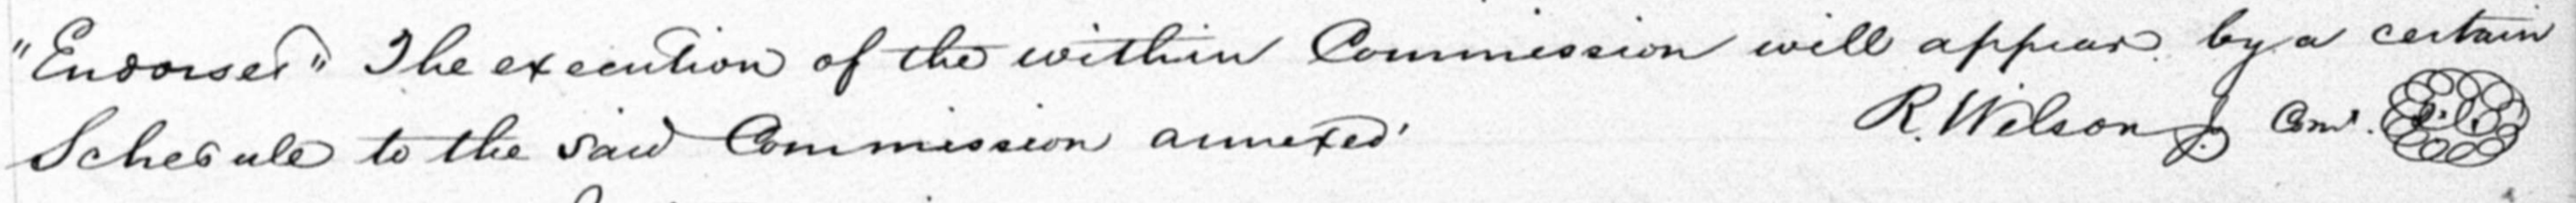 "Endorsed" The execution of the within Commission will appear by a certain
Schedule to the said Commission annexed
R. Wilson Jr. Comr. L.S.